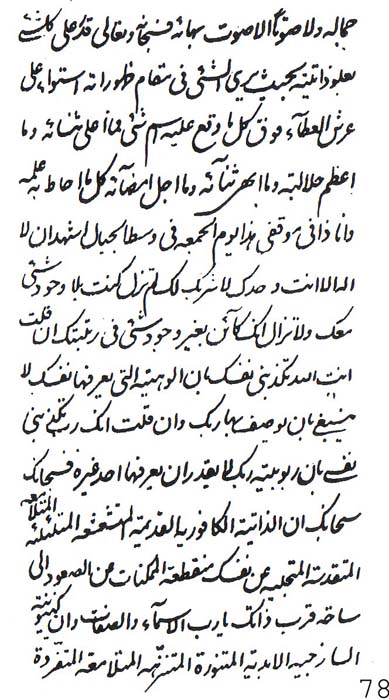 جماله ولا صوتًا الا صوت بهائه فسبحانه وتعالى قد على كلشیء
بعلو ذاتيته بحيث يرى الشیء فی مقام ظهوراته استواء على
عرش العطآء فوق كل ما وقع عليه اسم شیء فما اعلى ثنائه وما
اعظم جلالته وما ابهى ثنآئه وما اجل امضآئه كل ما احاط به علمه
وانا ذا فی موقفی هذا يوم الجمعه فی وسط الجبال اشهد ان لا
اله الا انت وحدك لا شريك لك لم تزل كنت بلا وجود شیء
معك ولا تزال انك كآئن بغير وجود شیء فی رتبتك ان قلت
انت الله تكذبنی نفسك بان الوهيته التی يعرفها نفسك لا
ينبغی بان يوصف بها ربك وان قلت انك رب تكذبنی
نفسی بان ربوبيته ربك لما يقدر ان يعرفها احد غيره فسبحانك
سبحانك ان الذاتية الكافورية القديمة المتشعشعة المتلئلئة المتلامعة
المتقدسة المتجلية عن نفسك منقطعة الممكنات عن الصعود الى
ساحة قرب ذاتك يا رب الاسمآء والصفات وان كينونية
الساذجية الابدية المتنورة المتنزهة المتلامعة المتفردة
78